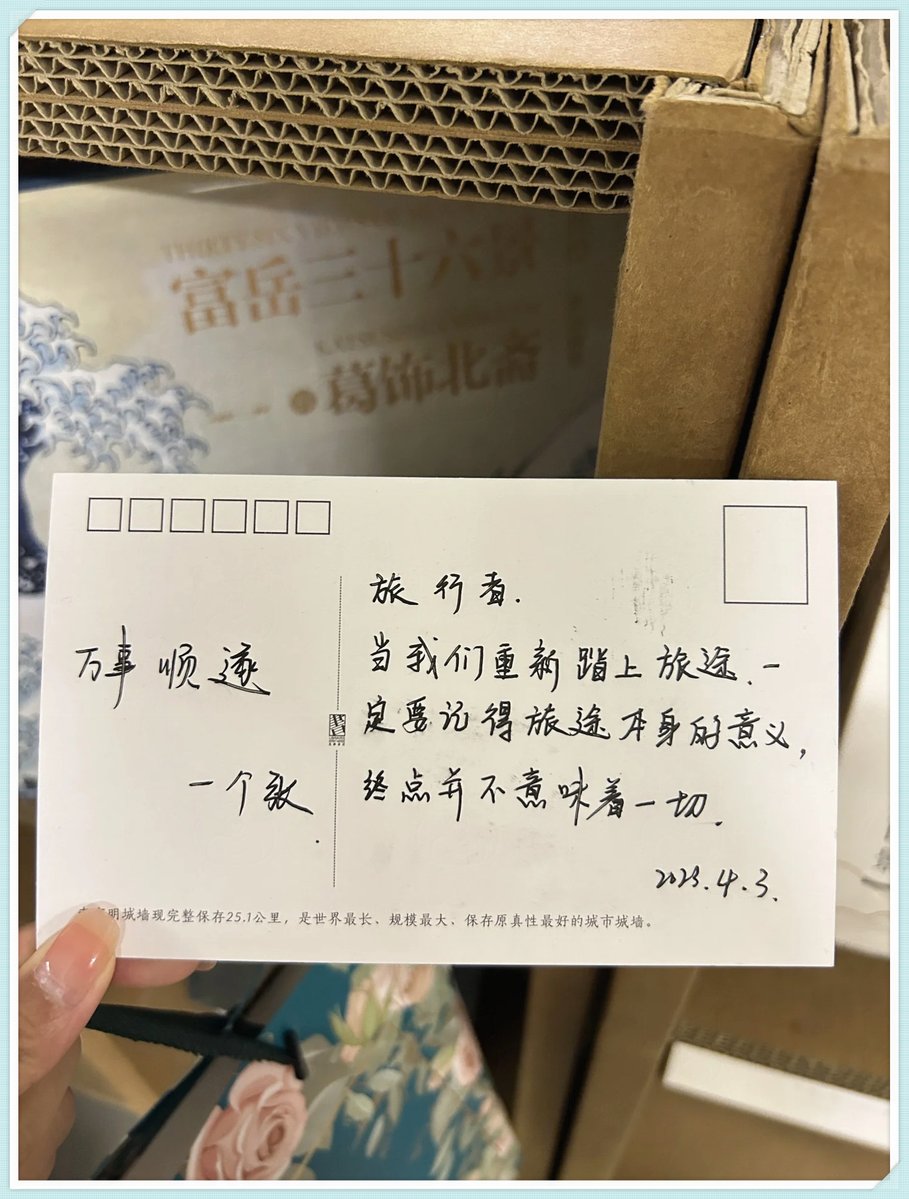 富岳三十六景
葛饰北斋
旅行者.
当我们重新踏上旅途.一
定要记得旅途本身的意义,
终点并不意味着一切.
2023.4.3.
万事顺遂
一个
明城墙现完整保存25.1公里，是世界最长、规模最大、保存原真性最好的城市城墙。